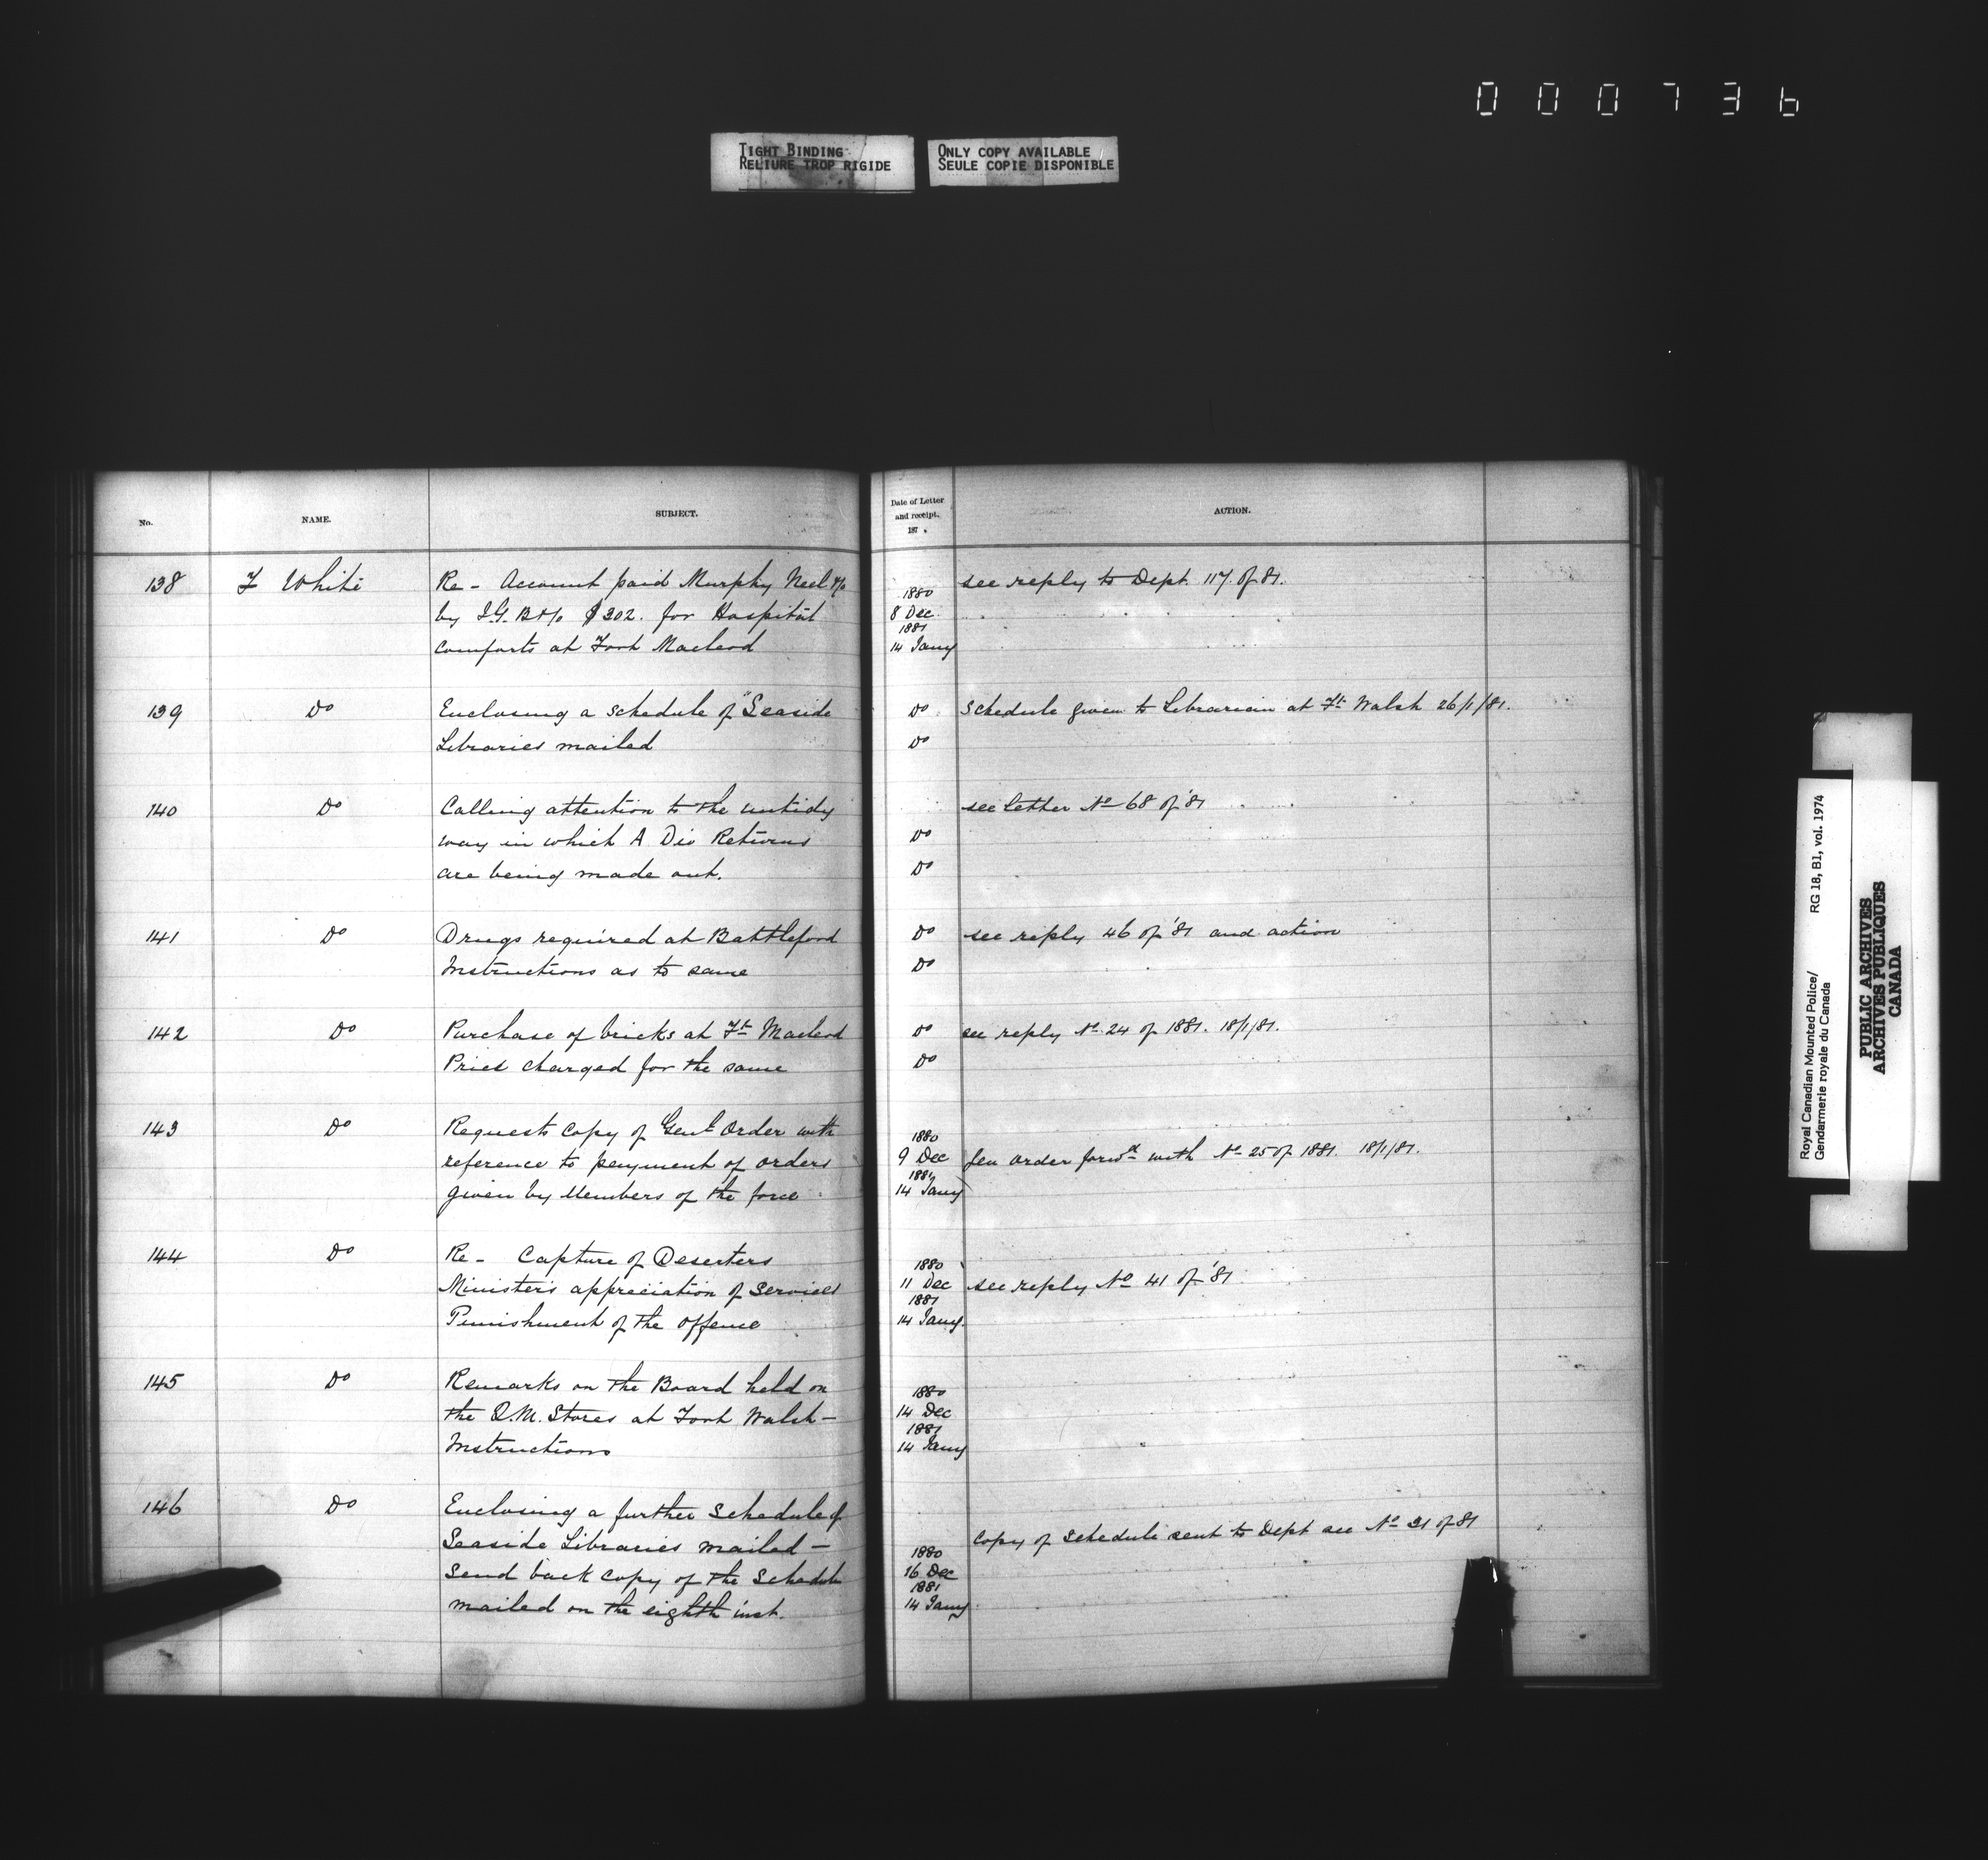 000736
TIGHT BINDING
RELIURE TROP RIGIDE
ONLY COPY AVAILABLE
SEULE COPIE DISPONIBLE
No.
NAME.
SUBJECT.
Date of Letter
and receipt.
187 .
ACTION.
138 F White Re - Account paid Murphy Neel &/o
by I.G. B &/o $302. for Hospital
comforts at Fort Macleod
1880
8 Dec
1881
14 Jany
see reply to Dept. 117 of 81.
139 Do Enclosing a schedule of "Seaside
Libraries mailed
Do
Do
Schedule given to Librarian at Ft Walsh 26/1/81.
140 Do Calling attention to the untidy
way in which A Div Returns
are being made out.
Do
Do
see letter No 68 of '81
141 Do Drugs required at Battleford
Instructions as to same
Do
Do
see reply 46 of '81 and action
142 Do Purchase of bricks at Ft Macleod
Pries charged for the same
Do
Do
see reply No 24 of 1881. 18/1/81.
143 Do Requests copy of Genl Order with
reference to payment of orders
given by Members of the force
1880
9 Dec
1881
14 Jany
Gen order forwd with No 25 of 1881. 18/1/81.
144 Do Re - Capture of Deserters
Ministers appreciation of Services
Punishment of the offence
1880
11 Dec
1881
14 Jany.
see reply No 41 of '81
145 Do Remarks on the Board held on
the Q.M. Stores at Fort Walsh -
Instructions
1880
14 Dec
1881
14 Jany
146 Do Enclosing a further Schedule of
Seaside Libraries mailed -
Send back copy of the Schedule
mailed on the eighth inst.
1880
16 Dec
1881
14 Jany
Copy of Schedule sent to Dept see No 31 of 81
Royal Canadian Mounted Police/
Gendarmerie royale du Canada
RG 18, B1, vol. 1974
PUBLIC ARCHIVES
ARCHIVES PUBLIQUES
CANADA